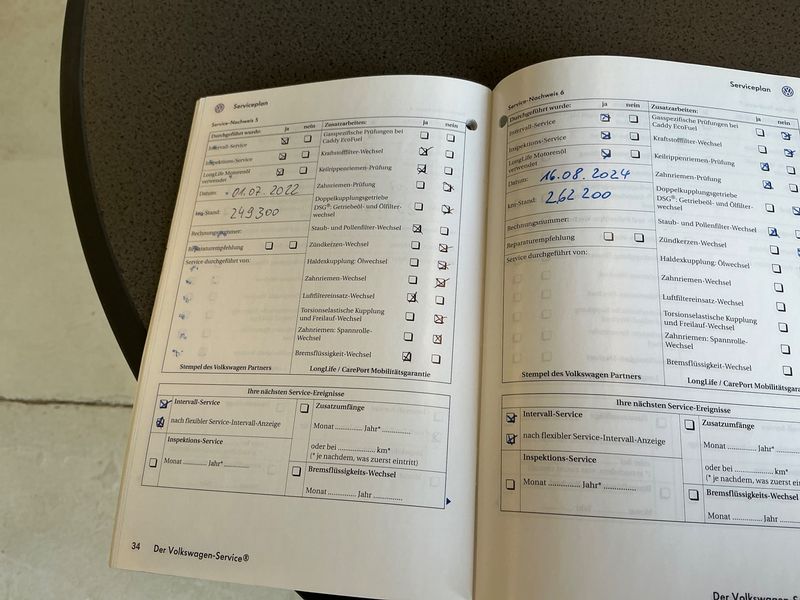 Serviceplan
Service-Nachweis 5
Durchgeführt wurde: ja nein
Intervall-Service
Inspektions-Service
LongLife Motorenöl verwendet
Datum: 01.07.2022
km-Stand: 249 300
Rechnungsnummer:
Reparaturempfehlung
Service durchgeführt von:
Stempel des Volkswagen Partners
Zusatzarbeiten: ja nein
Gasspezifische Prüfungen bei
Caddy EcoFuel
Kraftstofffilter-Wechsel
Keilrippenriemen-Prüfung
Zahnriemen-Prüfung
Doppelkupplungsgetriebe
DSG®: Getriebeöl- und Ölfilter-
wechsel
Staub- und Pollenfilter-Wechsel
Zündkerzen-Wechsel
Haldexkupplung: Ölwechsel
Zahnriemen-Wechsel
Luftfiltereinsatz-Wechsel
Torsionselastische Kupplung
und Freilauf-Wechsel
Zahnriemen: Spannrolle-
Wechsel
Bremsflüssigkeit-Wechsel
LongLife / CarePort Mobilitätsgarantie
Ihre nächsten Service-Ereignisse
Intervall-Service
nach flexibler Service-Intervall-Anzeige
Inspektions-Service
Monat ............ Jahr* ............
Zusatzumfänge
Monat ............ Jahr* ............
oder bei ............ km*
(* je nachdem, was zuerst eintritt)
Bremsflüssigkeits-Wechsel
Monat ............ Jahr ............
34 Der Volkswagen-Service®
Serviceplan
Service-Nachweis 6
Durchgeführt wurde: ja nein
Intervall-Service
Inspektions-Service
LongLife Motorenöl
verwendet
Datum: 16.08.2024
km-Stand: 262 200
Rechnungsnummer:
Reparaturempfehlung
Service durchgeführt von:
Stempel des Volkswagen Partners
Zusatzarbeiten: ja nein
Gasspezifische Prüfungen bei
Caddy EcoFuel
Kraftstofffilter-Wechsel
Keilrippenriemen-Prüfung
Zahnriemen-Prüfung
Doppelkupplungsgetriebe
DSG®: Getriebeöl- und Ölfilter-
wechsel
Staub- und Pollenfilter-Wechsel
Zündkerzen-Wechsel
Haldexkupplung: Ölwechsel
Zahnriemen-Wechsel
Luftfiltereinsatz-Wechsel
Torsionselastische Kupplung
und Freilauf-Wechsel
Zahnriemen: Spannrolle-
Wechsel
Bremsflüssigkeit-Wechsel
LongLife / CarePort Mobilitätsgara
Ihre nächsten Service-Ereignisse
Intervall-Service
nach flexibler Service-Intervall-Anzeige
Inspektions-Service
Monat ............ Jahr* ............
Zusatzumfänge
Monat ............ Jahr* ............
oder bei ............ km*
(* je nachdem, was zuerst ein
Bremsflüssigkeits-Wechsel
Monat ............ Jahr ............
Der Volkswagen-S